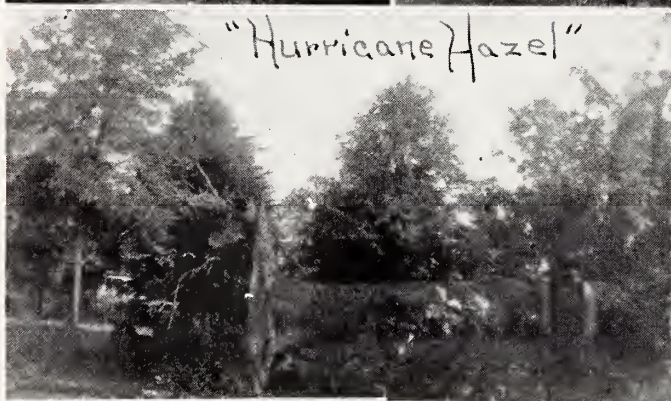 "Hurricane Hazel"